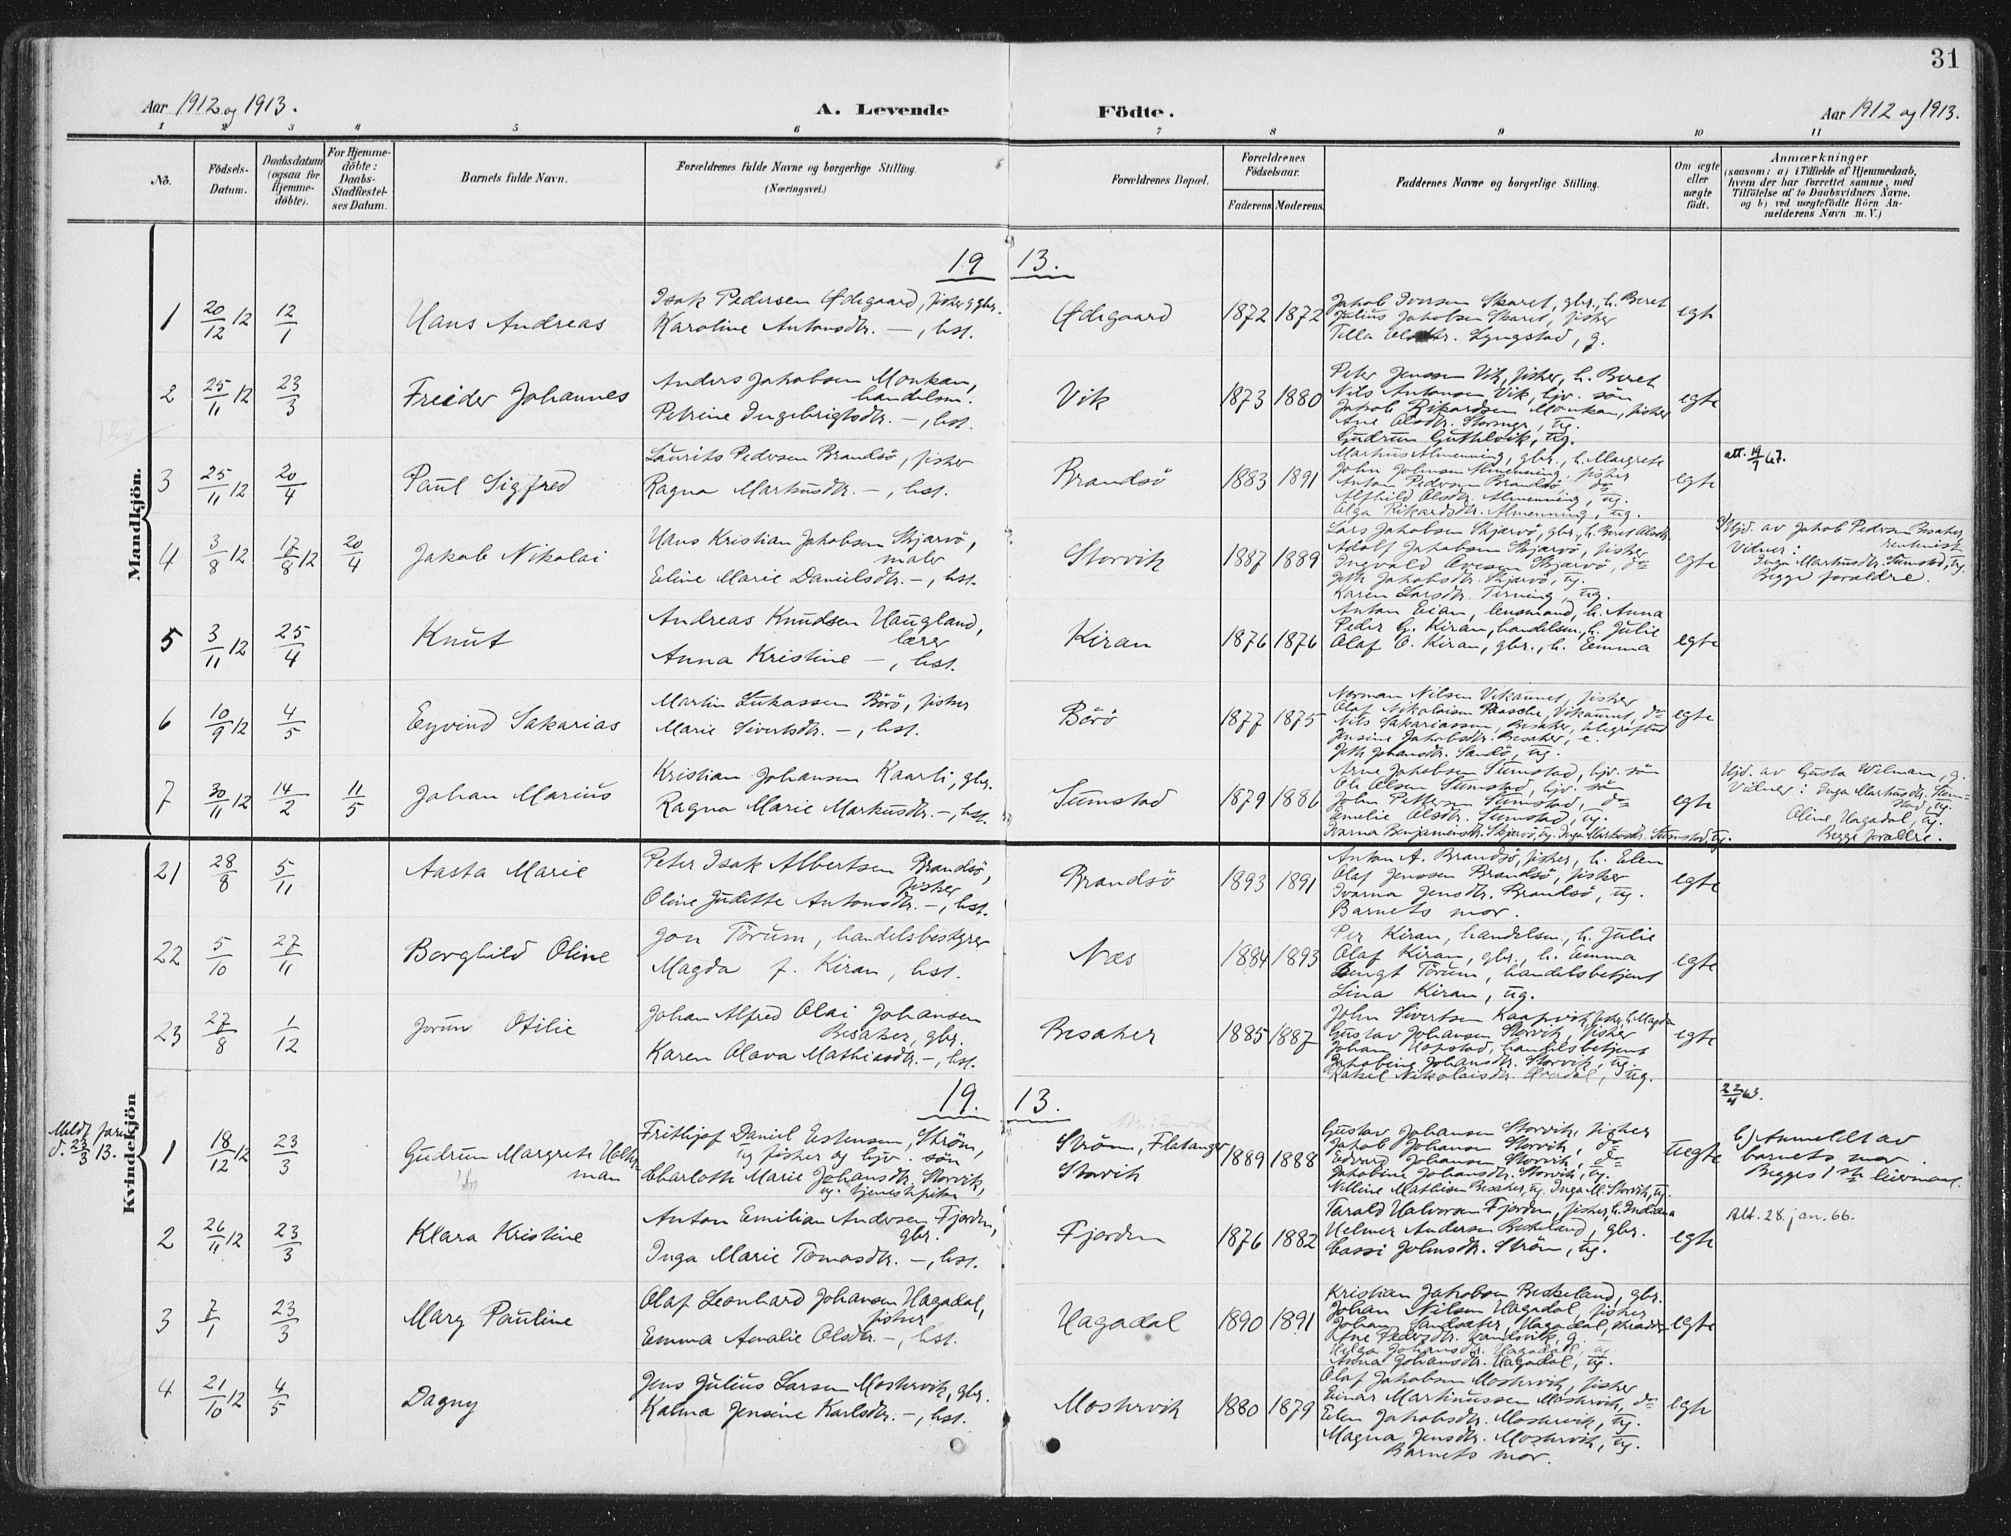 31
Aar 1912 og 1913. A. Levende Födte. Aar 1912 og 1913.
1 2 3 4 5 6 7 8 9 10 11
No. Födsels-Datum. Daabsdatum (ogsaa for Hjemme-döbte). For Hjemme-döbte: Daabs-Stadfæstel-ses Datum. Barnets fulde Navn. Forældrenes fulde Navne og borgerlige Stilling. (Næringsvei.) Forældrenes Bopæl. Forældrenes Födselsaar. Faderens Moderens. Faddernes Navne og borgerlige Stilling. Om ægte eller uægte födt. Anmærkninger (saasom: a) i Tilfælde af Hjemmedaab, hvem der har forrettet samme, med Tilföielse af to Daabsvidners Navne. og b) ved uægtefödte Börn An-melderens Navn m. V.)
Mandkjön.
19 13.
1 20/12 12 12/1 Hans Andreas
Isak Pedersen Ødegaard, fisker g gbr.
Karoline Antonsdtr. —, hst.
Ødegaard 1872 1872
Jakob Iversen Skaret, gbr., h. Beret
Julius Jakobsen Skaret, fisker
Tilla Olsdtr. Lyngstad, g.
egte
2 25/11 12 23/3 Freider Johannes
Anders Jakobsen Monkan,
handelsm.
Petrine Ingebrigtsdtr. —, hst.
Vik 1873 1880
Peter Jenssen Vik, fisker, h. Beret
Nils Antonsen Vik, hjv. sön
Jakob Rikardsen Monkan, fisker
Ane Olsdtr. , ug.
Gudrun Guthlvik, ug.
egte
3 25/11 12 20/4 Paul Sigfred
Laurits Pedersen Brandsö, fisker
Ragna Markusdtr. —, hst.
Brandsö 1883 1891
Markus Almenning, gbr., h. Margrete
John Johnsen Almenning, fisker
Anton Pedersen Brandsö, do
Alfhild Olsdtr. Almenning, ug.
Olga Rikardsdtr. Almenning, ug.
egte
att. 19/7 67.
4 3/8 12 17/8 12 20/4 Jakob Nikolai
Hans Kristian Jakobsen Skjærvö,
maler
Eline Marie Danielsdtr. —, hst.
Storvik 1887 1889
Lars Jakobsen Skjærvö, gbr., h. Beret Olsdtr.
Adolf Jakobsen Skjærvö, fisker
Ingvald Ovesen Skjærvö, do
Jakobsdtr. Skjærvö, ug.
Karen Larsdtr. Terning, ug.
egte
Hjd. av Jakob Pedersen Besaker,
rentenist
Vidner:
Inga Markusdtr. Sumstad, ug.
Begge foreldre.
5 3/11 12 25/4 Knut
Andreas Knudsen Haugland,
lærer
Anna Kristine —, hst.
Kiran 1876 1876
Anton Eian, lensmand, h. Anna
Peder G. Kiran, handelsm., h. Julie
Olaf O. Kiran, gbr., h. Emma
egte
6 10/9 12 4/5 Eyvind Sakarias
Martin Lukassen Börö, fisker
Marie Sivertsdtr. —, hst.
Börö 1877 1875
Norman Nilsen Vikaunet, fisker
Olaf Nikolaisen Raasche, Vikaunet, do
Nils Sakariassen, Besaker, telegrafbud
Jensine Jakobsdtr. Besaker, e.
Johansdtr. Sandö, ug.
egte
7 30/11 12 14/2 11/5 Johan Marius
Kristian Johansen Kaarli, gbr.
Ragna Marie Markusdtr. —, hst.
Sumstad 1879 1886
Arne Jakobsen Sumstad, hjv. sön
Ole Olsen Sumstad, hjv. sön
John Pettersen Sumstad, do
Emelie Olsdtr. Sumstad, ug.
Ivarna Benjaminsdtr. Skjærvö, ug. Inga Markusdtr. Sumstad, ug.
egte
Hjd. av Gusta Wilman, g.
Vidner: Inga Markusdtr. Sum-
stad, ug.
Oline Hagadal, ug.
Begge forældre.
Kvindekjön
21 28/8 5/11 Aasta Marie
Peter Isak Albertsen Brandsö,
fisker
Oline Juditte Antonsdtr. —, hst.
Brandsö 1893 1891
Anton A. Brandsö, fisker, h. Elen
Olaf Jenssen Brandsö, fisker
Ivarna Jensdtr. Brandsö, ug.
Barnets mor.
egte
22 5/10 27/11 Borghild Oline
Jon Törum, handelsbestyrer
Magda f. Kiran, hst.
Næs 1884 1893
Per Kiran, handelsm., h. Julie
Olaf Kiran, gbr., h. Emma
Bengt Törum, handelsbetjent
Lina Kiran, ug.
egte
23 27/8 1/12 Jorun Otilie
Johan Alfred Olai Johansen
Besaker, gbr.
Karen Olava Mathiasdtr. —, hst.
Besaker 1885 1887
John Sivertsen Kaapvik, fisker, h. Magda
Gustav Johansen Storvik, fisker
Johan Hopstad, handelsbetjent
Jakobine Johansdtr. Storvik, ug.
Rakel Nikolaisdtr. Overdal, ug.
egte
19. 13.
22/4 63.
Meldt faren
d. 23/3 13.
1 18/12 12 23/3 Gudrun Margrete Holth
man
Frithjof Daniel Estensen, Ström,
ug fisker og hjv. sön
Charlotte Marie Johansdtr. Storvik,
ug. tjenestepike
Ström, Flatanger
Storvik
1889 1888
Gustav Johansen Storvik, fisker
Jakob Johansen Storvik, do
Edvard Johansen Storvik, do
Jakobine Johansdtr. Storvik, ug.
Nilline Mathisen Besaker, ug. Inga M. Storvik, ug.
uegte
b) Anmeldt av
barnets mor.
Begges 1ste leiermaal.
2 26/11 12 23/3 Klara Kristine
Anton Emilian Andersen Fjorden,
gbr.
Inga Marie Tomasdtr. —, hst.
Fjorden 1876 1882
Tarald Halvorsen Fjorden, fisker, h. Indiana
Helmer Andersen Beskeland, gbr.
Cassi Johnsdtr. Ström, ug.
egte
Att. 28. jan. 66.
3 7/1 23/3 Mary Pauline
Olaf Leonhard Johansen Hagadal,
fisker
Emma Amalie Olsdtr. —, hst.
Hagadal 1890 1891
Kristian Jakobsen Beskeland, gbr.
Johan Nilsen Hagadal, fisker
Johan Sandsæter, Hagadal, skrædder
Pedersdtr. Kandsvik, g.
Helga Johansdtr. Hagadal, ug.
Anna Johansdtr. Hagadal, ug.
egte
4 21/10 12 4/5 Dagny
Jens Julius Larsen Moskevik, gbr.
Kalma Jensine Karlsdtr. —, hst.
Moskvik 1880 1879
Olaf Jakobsen Moskevik, fisker
Einar Martinussen Moskvik, do
Elen Jakobsdtr. Moskevik, ug.
Magna Jensdtr. Moskvik, ug.
Barnets mor.
egte